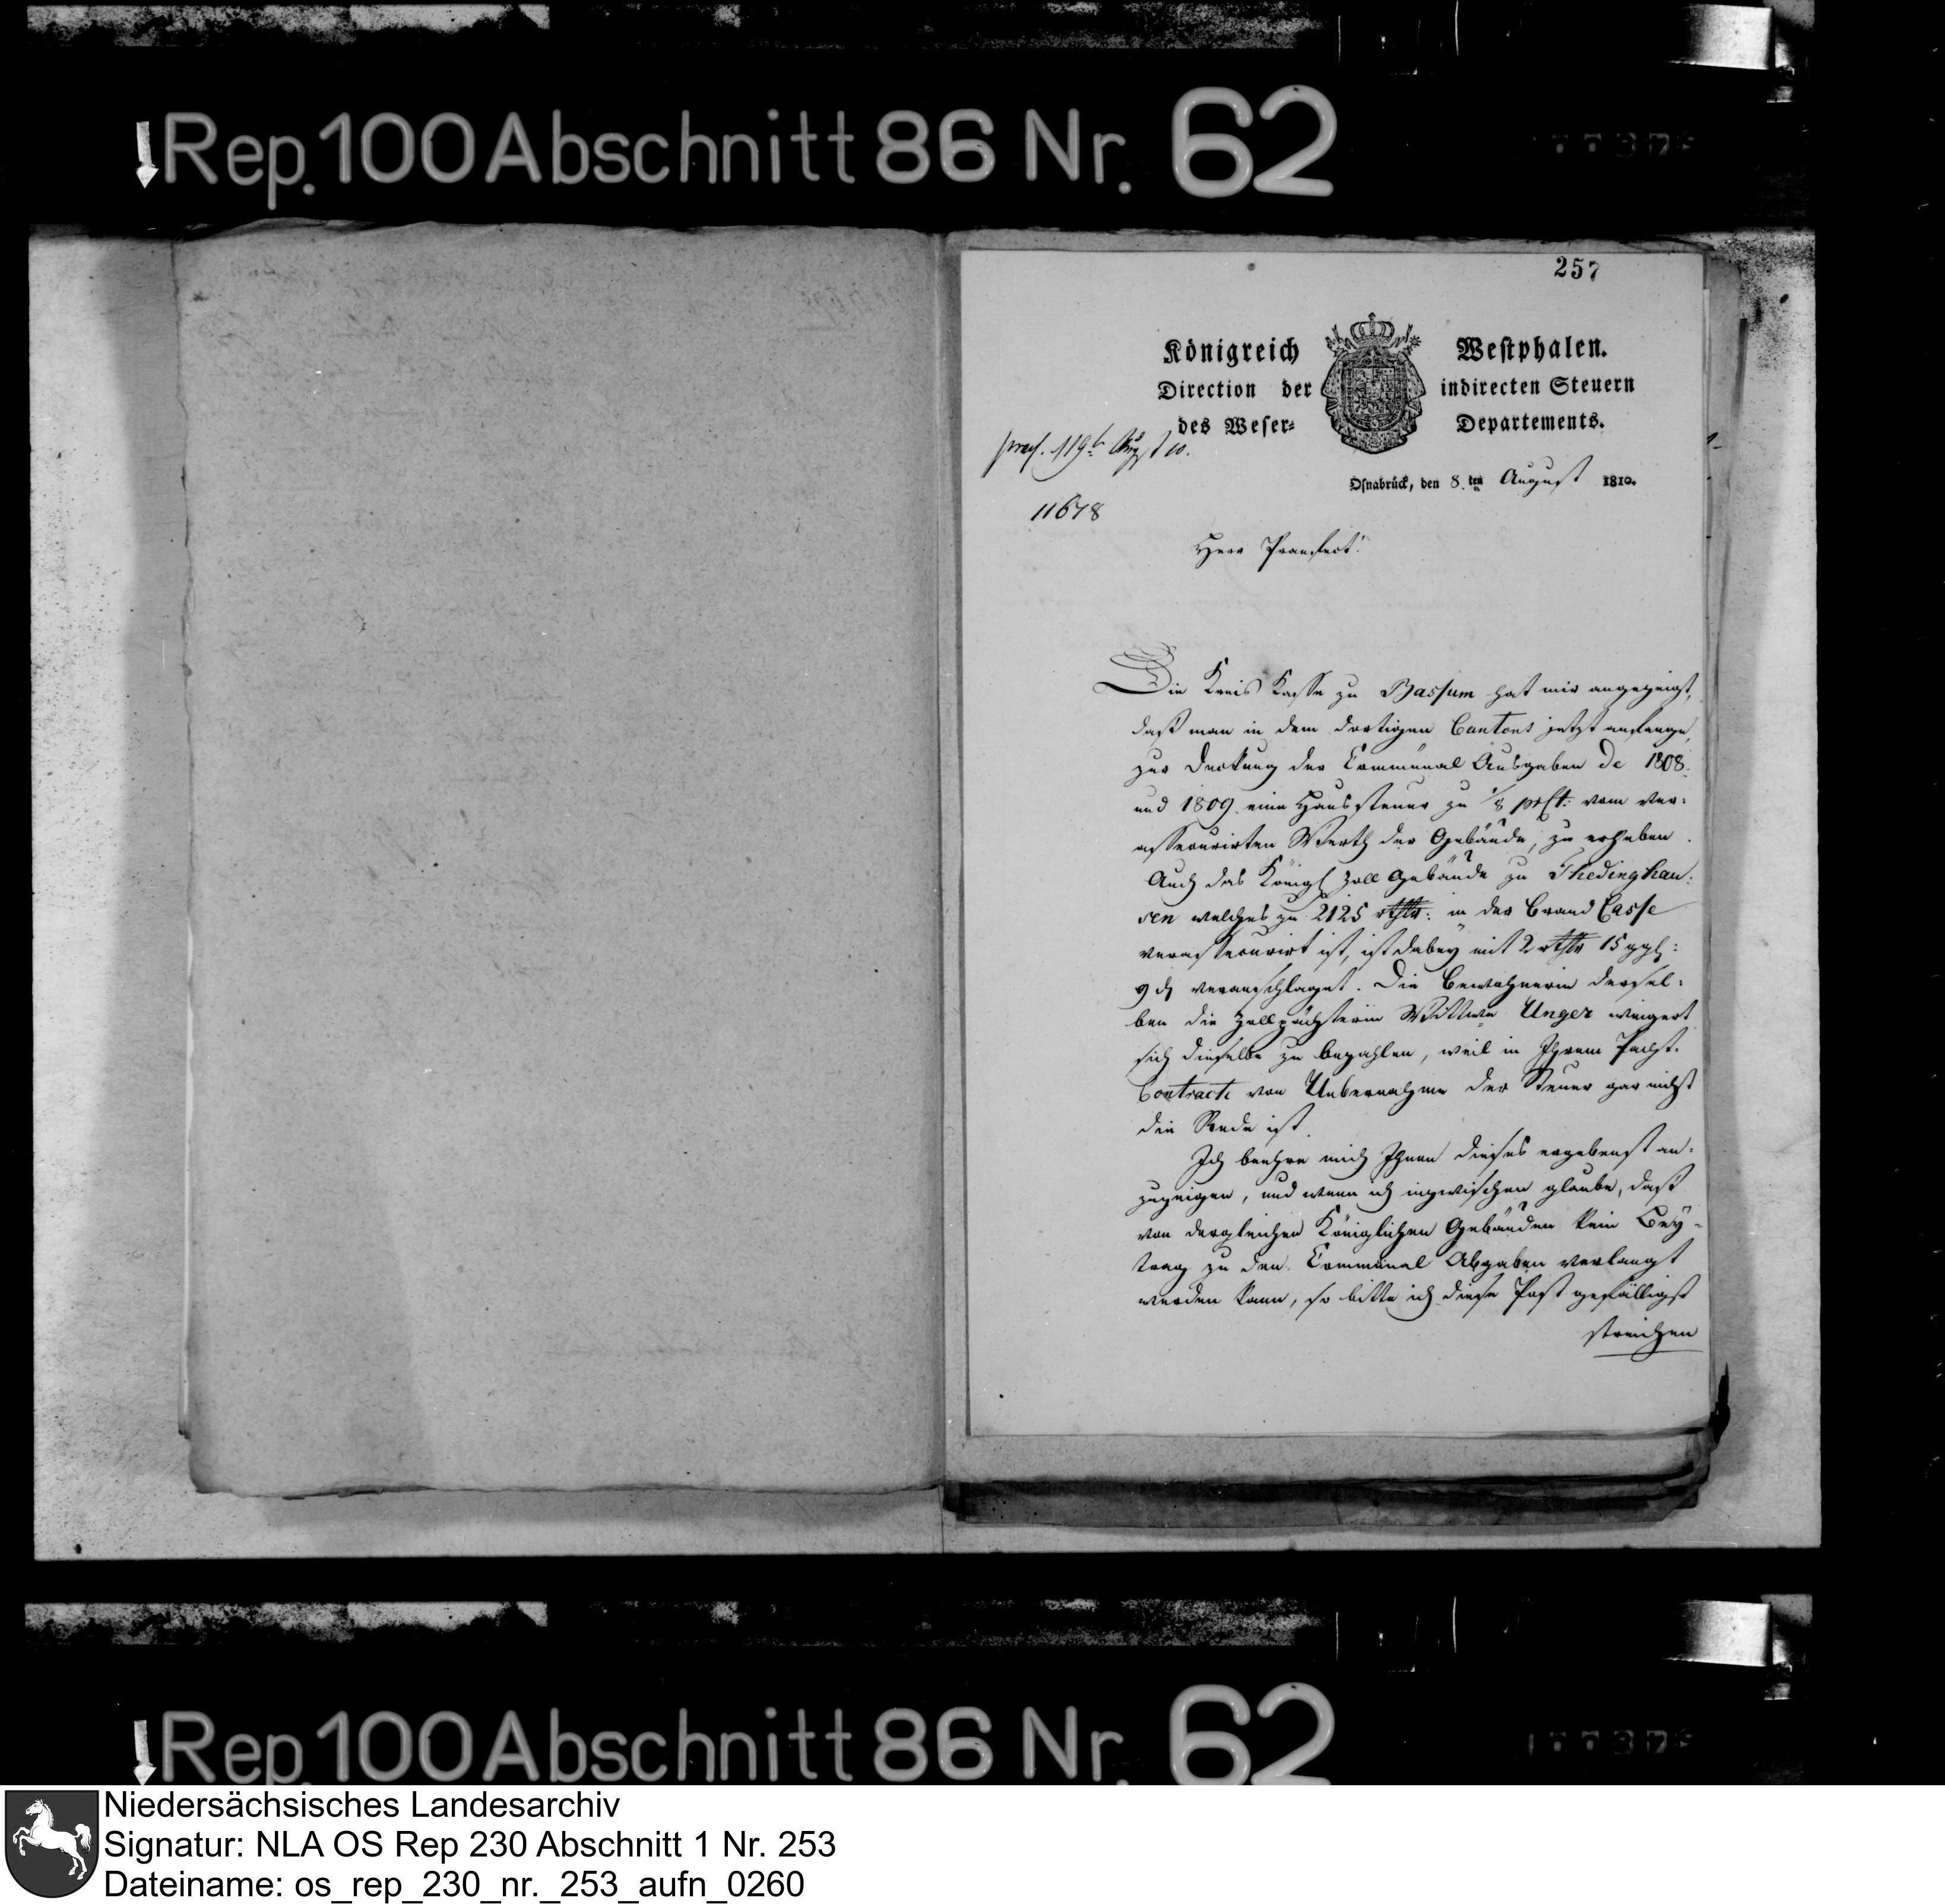 Rep. 100 Abschnitt 86 Nr. 62
257
Königreich Westphalen.
Direction der indirecten Steuern
des Weser- Departements.
præs. 19t August 10.
Osnabrück, den 8.ten August 1810.
11678
Herr Praefect!
Die Kreis Kasse zu Bassum hat mir angezeigt,
daß man in dem dortigen Cantons jetzt anfange,
zur Deckung der Communal Ausgaben de 1808.
und 1809. eine Haussteuer zu 1/8 prCt: vom ver-
assecurirten Werth der Gebäude, zu erheben.
Auch das Königl Zoll Gebäude zu Thedinghau-
sen welches zu 2125 rthlr: in der Brand Casse
verassecurirt ist, ist dabey mit 2 rthlr 15 ggl:
9 d veranschlagt. Die Bewohnerin dersel-
ben die Zollpächterin Wittwe Unger weigert
sich dieselbe zu bezahlen, weil in Ihrem Pacht-
Contracte von Uebernahme der Steuer gar nicht
die Rede ist.
Ich beehre mich Ihnen dieses ergebenst an-
zuzeigen, und wenn ich inzwischen glaube, daß
von dergleichen Königlichen Gebäuden kein Bey-
trag zu den Communal Abgaben verlangt
werden kann, so bitte ich diese Post gefälligst
streichen
Rep. 100 Abschnitt 86 Nr. 62
Niedersächsisches Landesarchiv
Signatur: NLA OS Rep 230 Abschnitt 1 Nr. 253
Dateiname: os_rep_230_nr._253_aufn_0260